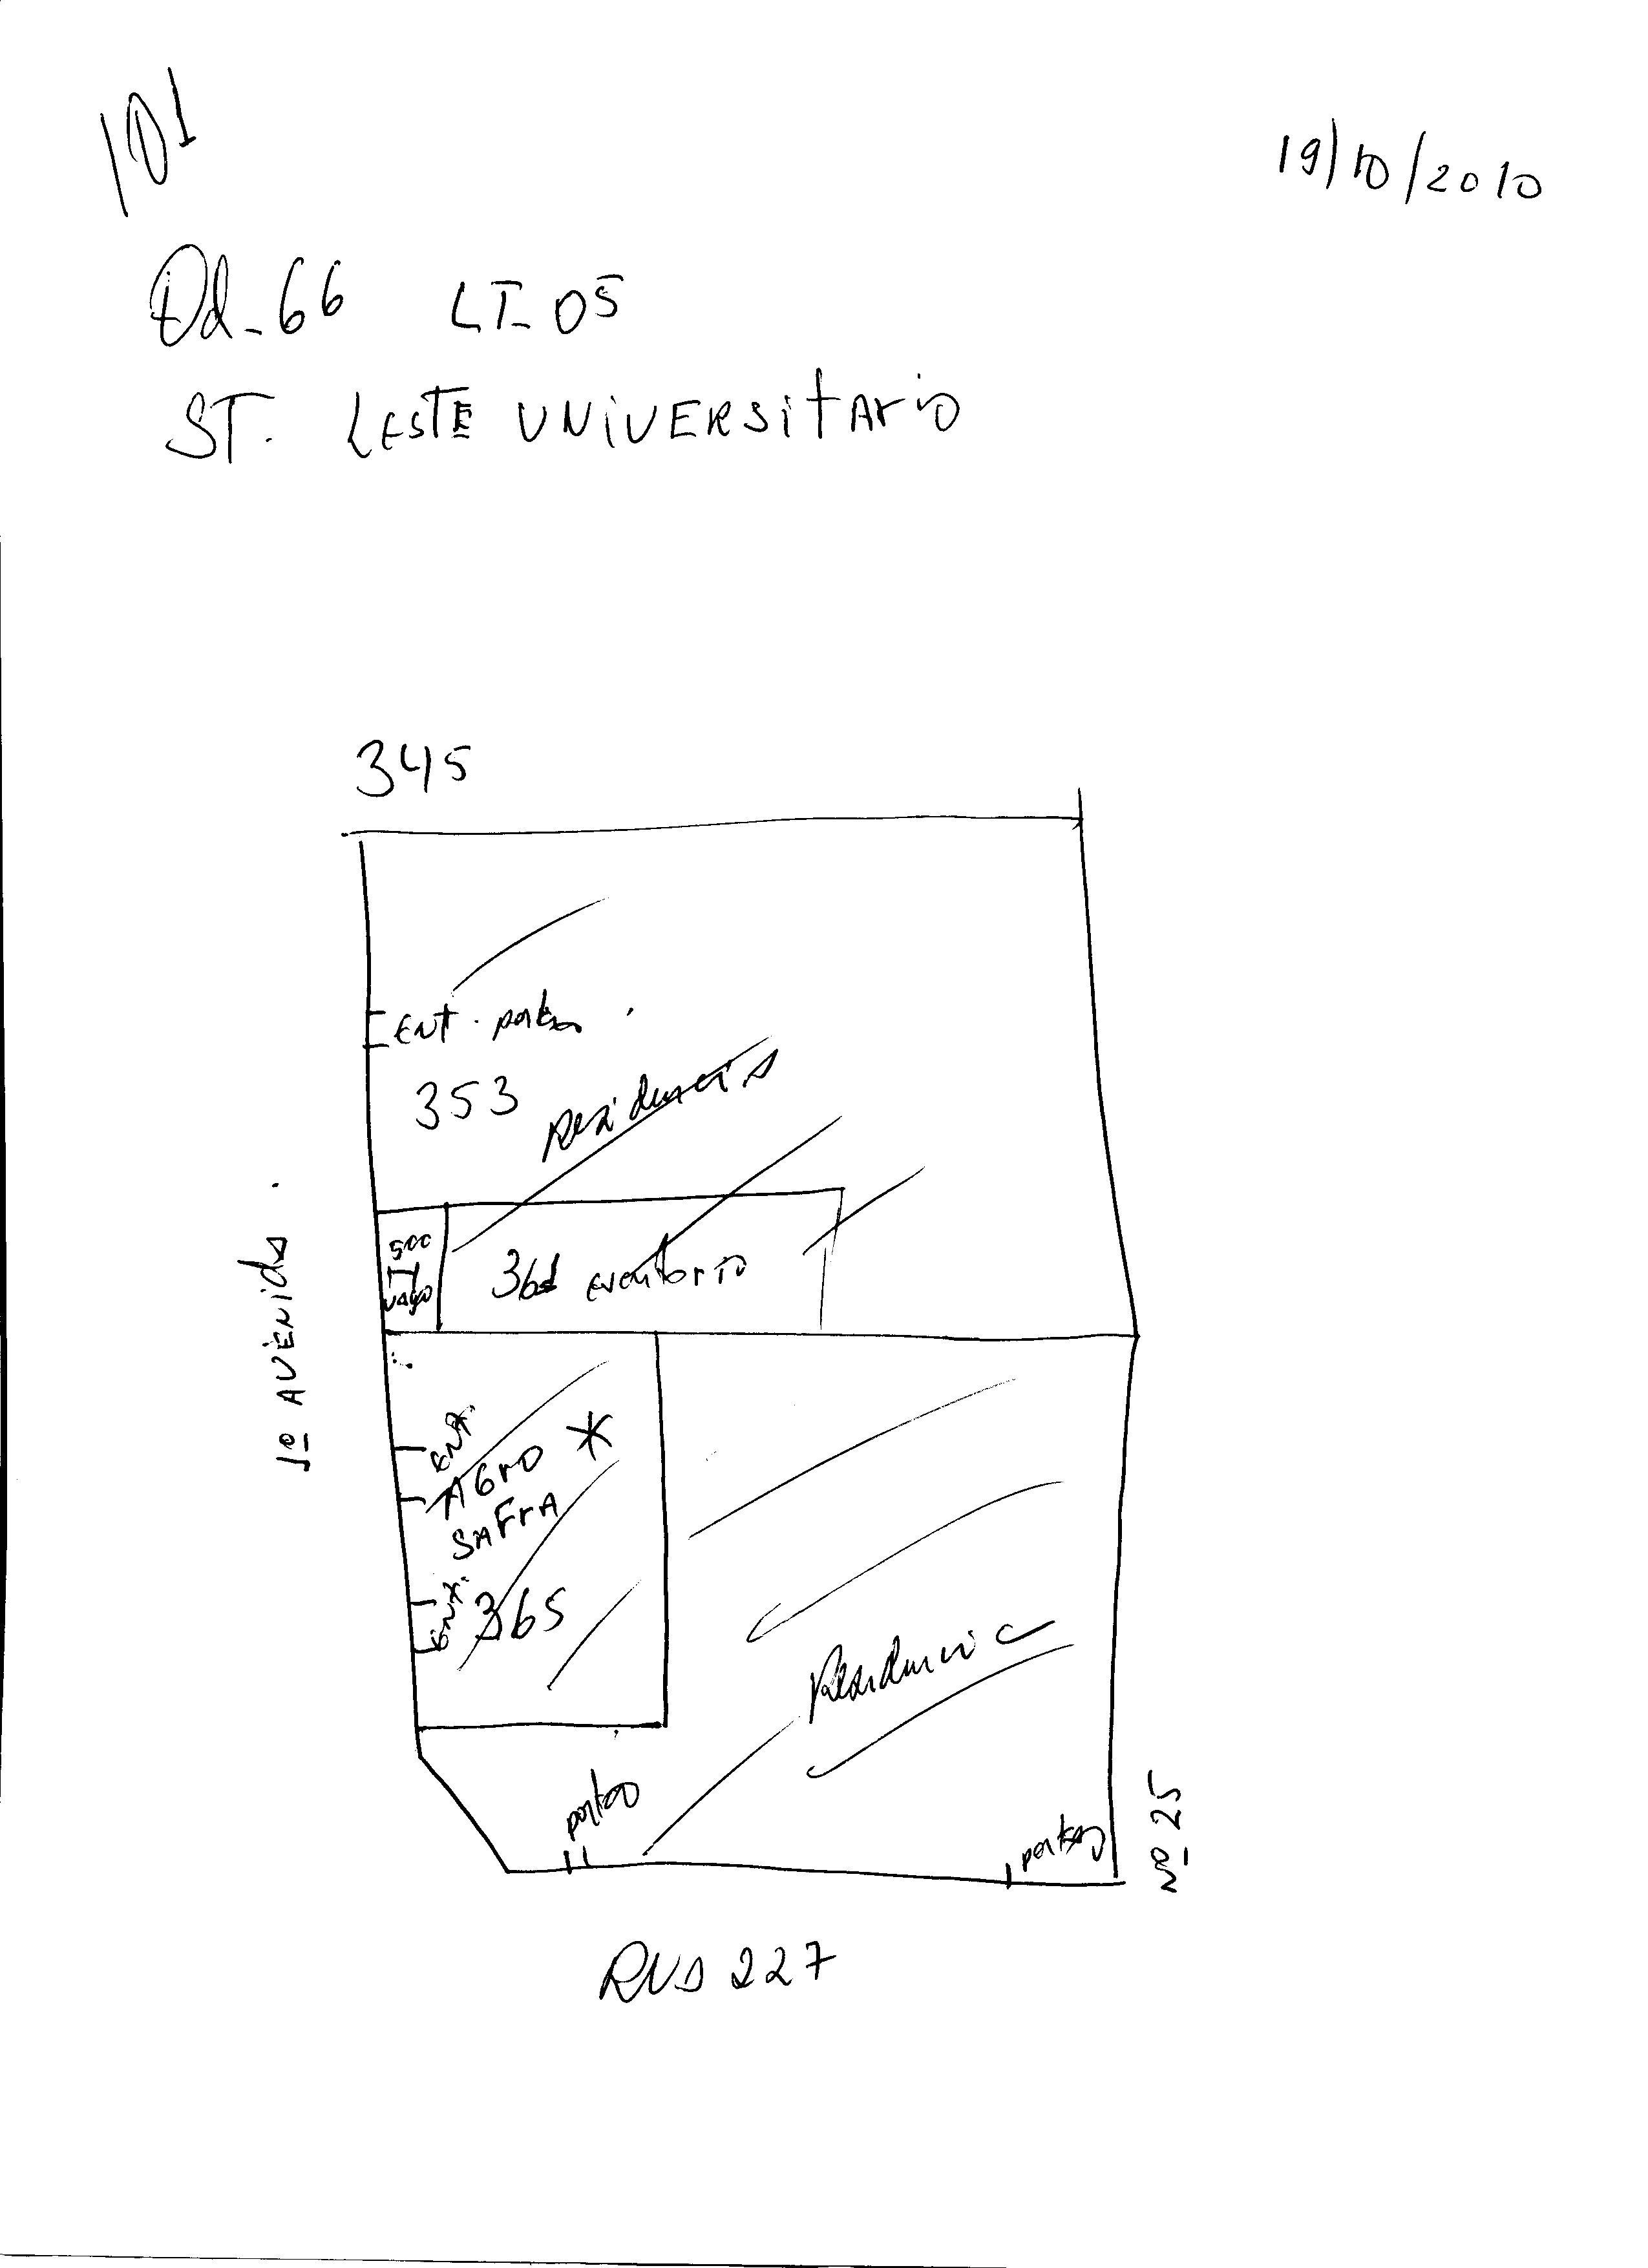 101
19/10/2010
Qd-66 LT-05
ST. LESTE UNIVERSITARIO
345
ENT. portão
353
Residencia
vago
escritorio
1º AVENIDA.
ENT.
AGrO *
SAFrA
ENT.
365
Residencia
portão
portão
Nº 25
RUA 227